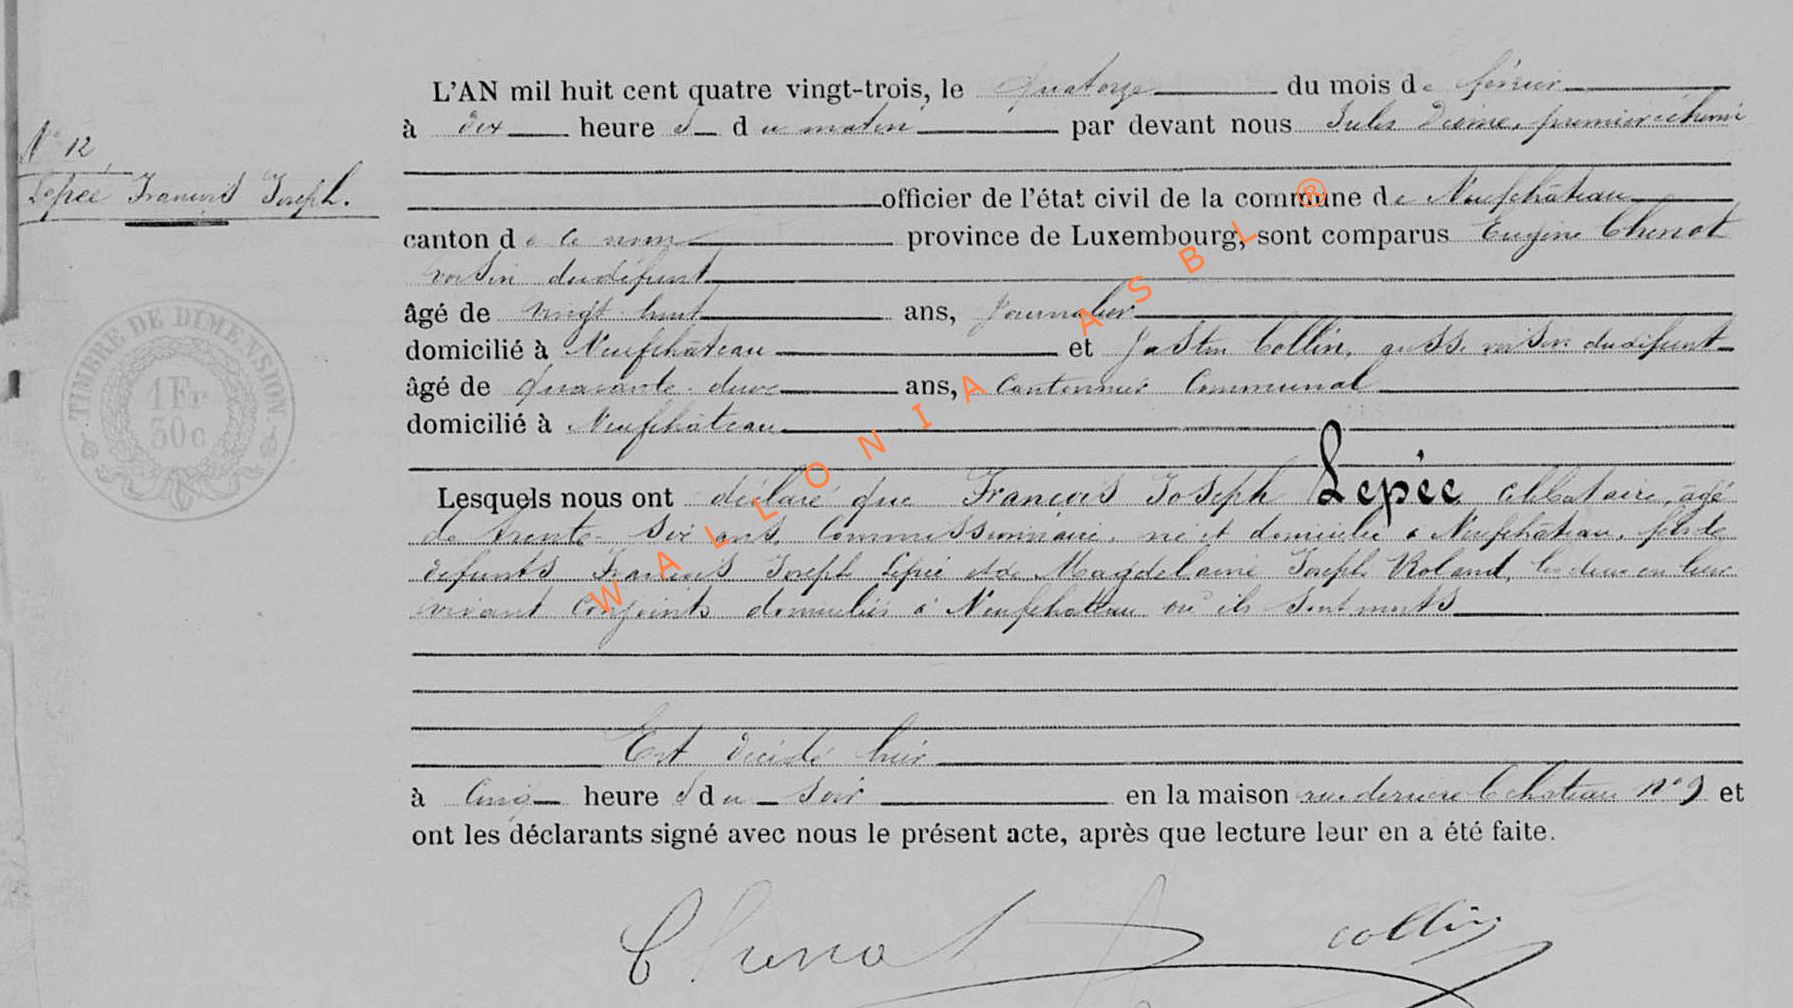 L'AN mil huit cent quatre vingt-trois, le quatorze du mois de février
à dix heures du matin par devant nous Jules premier échevin
N° 12
Lepée François Joseph.
officier de l'état civil de la commune de Neufchâteau
canton de ce nom province de Luxembourg, sont comparus Eugène Chenot
voisin du défunt
âgé de vingt huit ans, journalier
domicilié à Neufchâteau et Justin Collin, aussi voisin du défunt
âgé de quarante deux ans, Cantonnier Communal
domicilié à Neufchâteau
TIMBRE DE DIMENSION
1 Fr
30c
Lesquels nous ont déclaré que François Joseph Lepée célibataire, âgé
de trente-six ans, Commissionnaire, né et domicilié à Neufchâteau, fils de
défunts François Joseph Lepée et de Magdelaine Joseph Roland, les deux en leur
vivant Conjoints domiciliés à Neufchâteau où ils sont morts
Est décédé hier
à cinq heures du soir en la maison rue derrière le château n° 9 et
ont les déclarants signé avec nous le présent acte, après que lecture leur en a été faite.
Chenot collin
WALLONIA ASBL ®